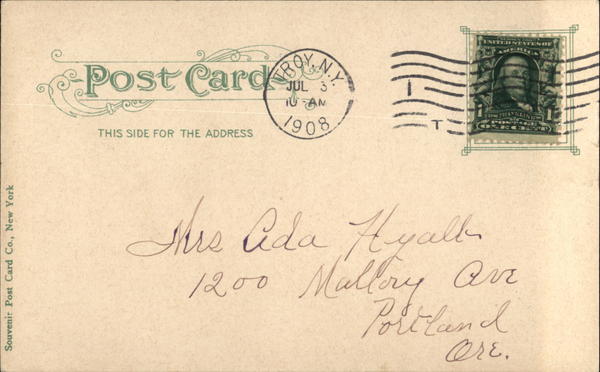 Post Card
THIS SIDE FOR THE ADDRESS
TROY, N.Y.
JUL 3
10 AM
1908
1
T
UNITED STATES OF
AMERICA
1 1
ONE CENT
Mrs Ada Hyatt
1200 Mallory Ave
Portland
Ore.
Souvenir Post Card Co., New York